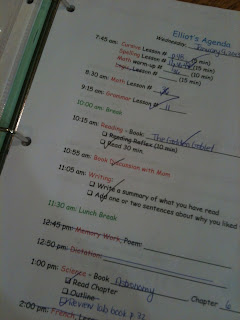 Elliot's Agenda
Wednesday,
7:45 am: Cursive Lesson #
Spelling Lesson # (15 min)
Math warm-up # (15 min)
Logic Lesson # (10 min)
8:30 am: Math Lesson #
9:15 am: Grammar Lesson # 11
10:00 am: Break
10:15 am: Reading - Book: The Golden Goblet
Read 30 min.
10:55 am: Book Discussion with Mom
11:05 am: Writing:
Write a summary of what you have read
Add one or two sentences about why you liked
11:30 am: Lunch Break
12:45 pm: Memory Work, Poem:
12:50 pm: Dictation:
1:00 pm: Science - Book Astronomy Chapter 6
Read Chapter
Outline
Review lab book p 72
2:00 pm: French, Less